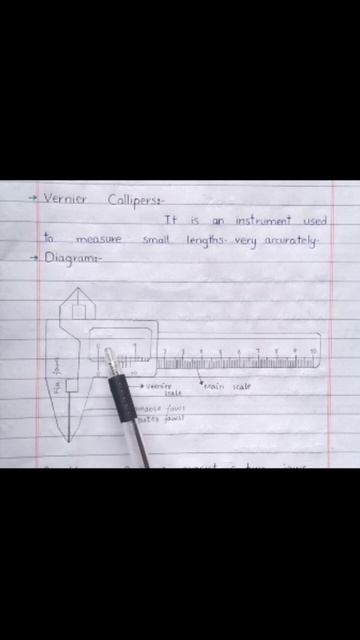 → Vernier Callipers:-
It is an instrument used
to measure small lengths very accurately.
→ Diagram:-
2 3 4 5 6 7 8 9 10
10
→ Vernier
scale
Main scale
jaws
jaws
jaws